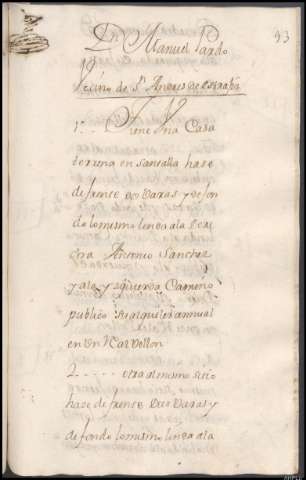 93
Dn. Manuel Pardo
Vecino de Sn. Andres de
1.... Tiene Vna Casa
terrena en Santalla hase
de frente dos Varas y de fon
do lo mismo linda a la Dere
cha Antonio Sanchez
y Yzquierda Camino
publico su alquiler annual
en Vn Rl. de Vellon
2...... otra al mismo sitio
hase de frente tres Varas y
de fondo lo mismo linda a la